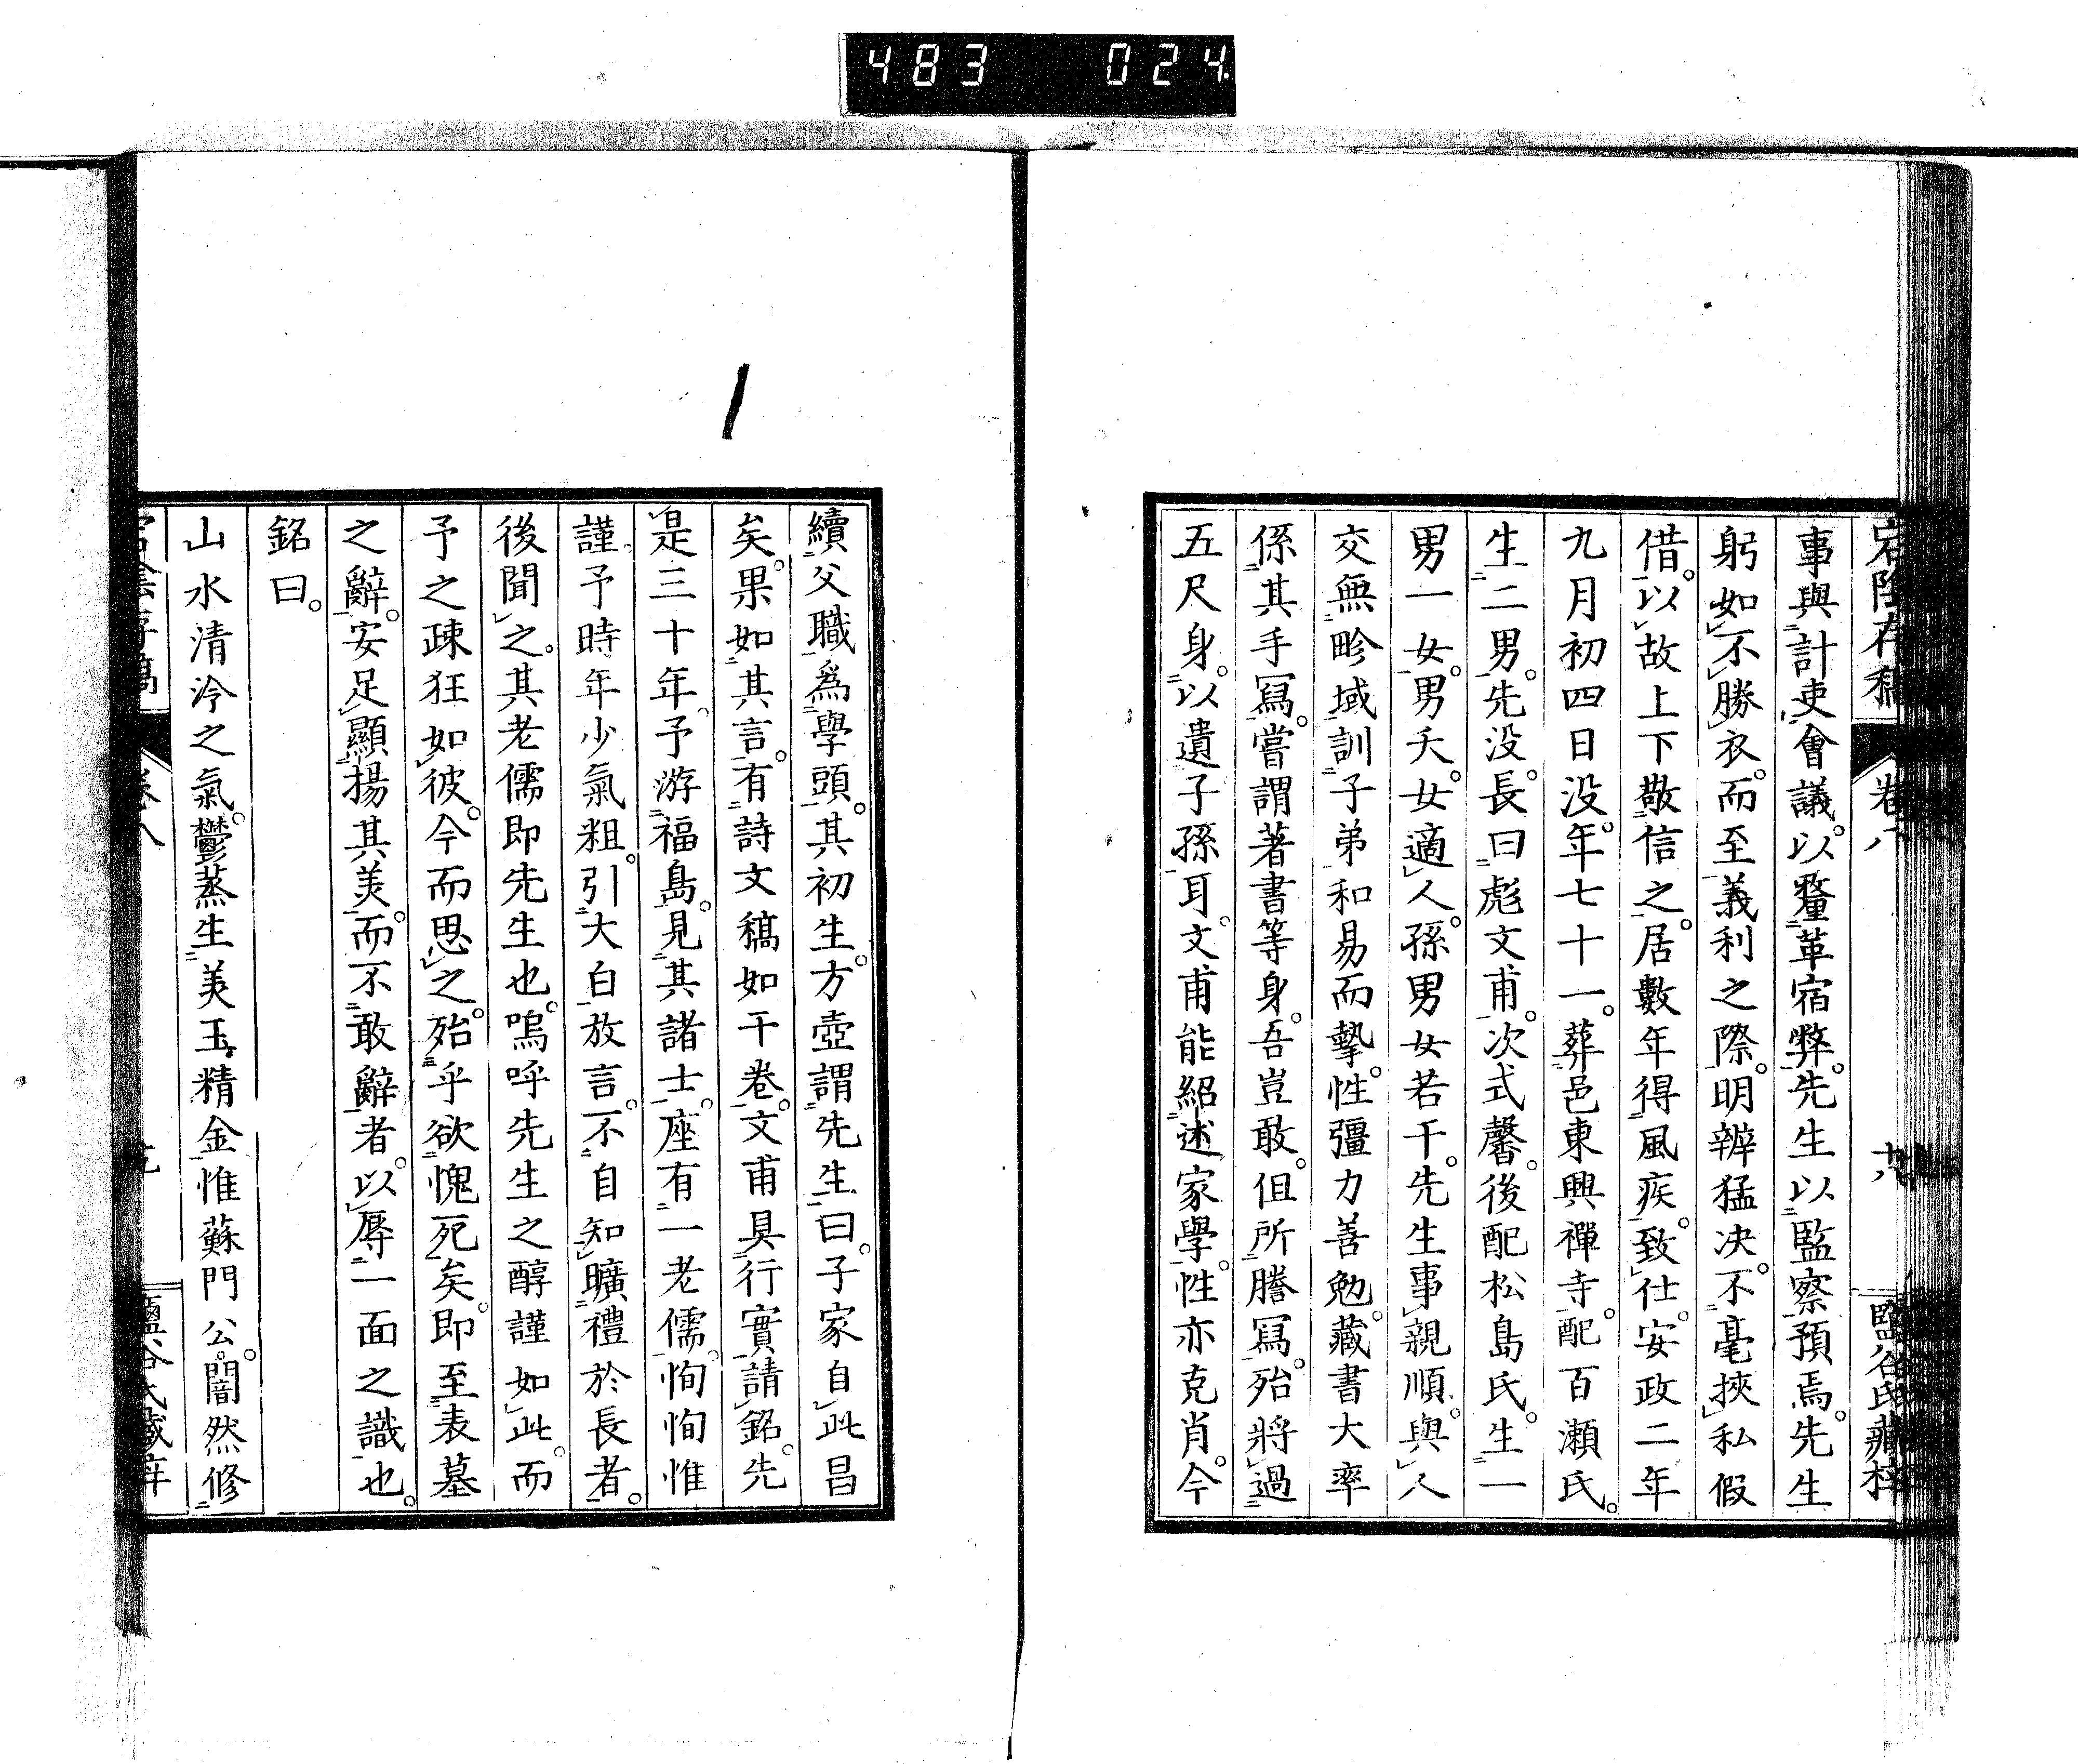 483 024
宕陰存稿 卷八 十八 鹽谷氏藏梓
事與計吏會議。以釐革宿弊。先生以監察預焉。先生
躬如不勝衣。而至義利之際。明辨猛决。不毫挾私假
借。以故上下敬信之。居數年得風疾。致仕。安政二年
九月初四日没。年七十一。葬邑東興禪寺。配百瀬氏。
生二男。先没。長曰彪文甫。次式馨。後配松島氏。生一
男一女。男夭。女適人。孫男女若干。先生事親順。與人
交無畛域。訓子弟和易而摯。性彊力善勉。藏書大率
係其手寫。嘗謂著書等身。吾豈敢。但所謄寫。殆將過
五尺身。以遺子孫耳。文甫能紹述家學。性亦克肖。今
續父職爲學頭。其初生。方壺謂先生曰。子家自此昌
矣。果如其言。有詩文稿如干卷。文甫具行實請銘。先
是三十年。予游福島。見其諸士。座有一老儒。恂恂惟
謹。予時年少氣粗。引大白放言。不自知曠禮於長者。
後聞之。其老儒即先生也。嗚呼先生之醇謹如此。而
予之疎狂如彼。今而思之。殆乎欲愧死矣。即至表墓
之辭。安足顯揚其美。而不敢辭者。以辱一面之識也。
銘曰。
山水清泠之氣。鬱蒸生美玉精金。惟蘇門公。闇然修